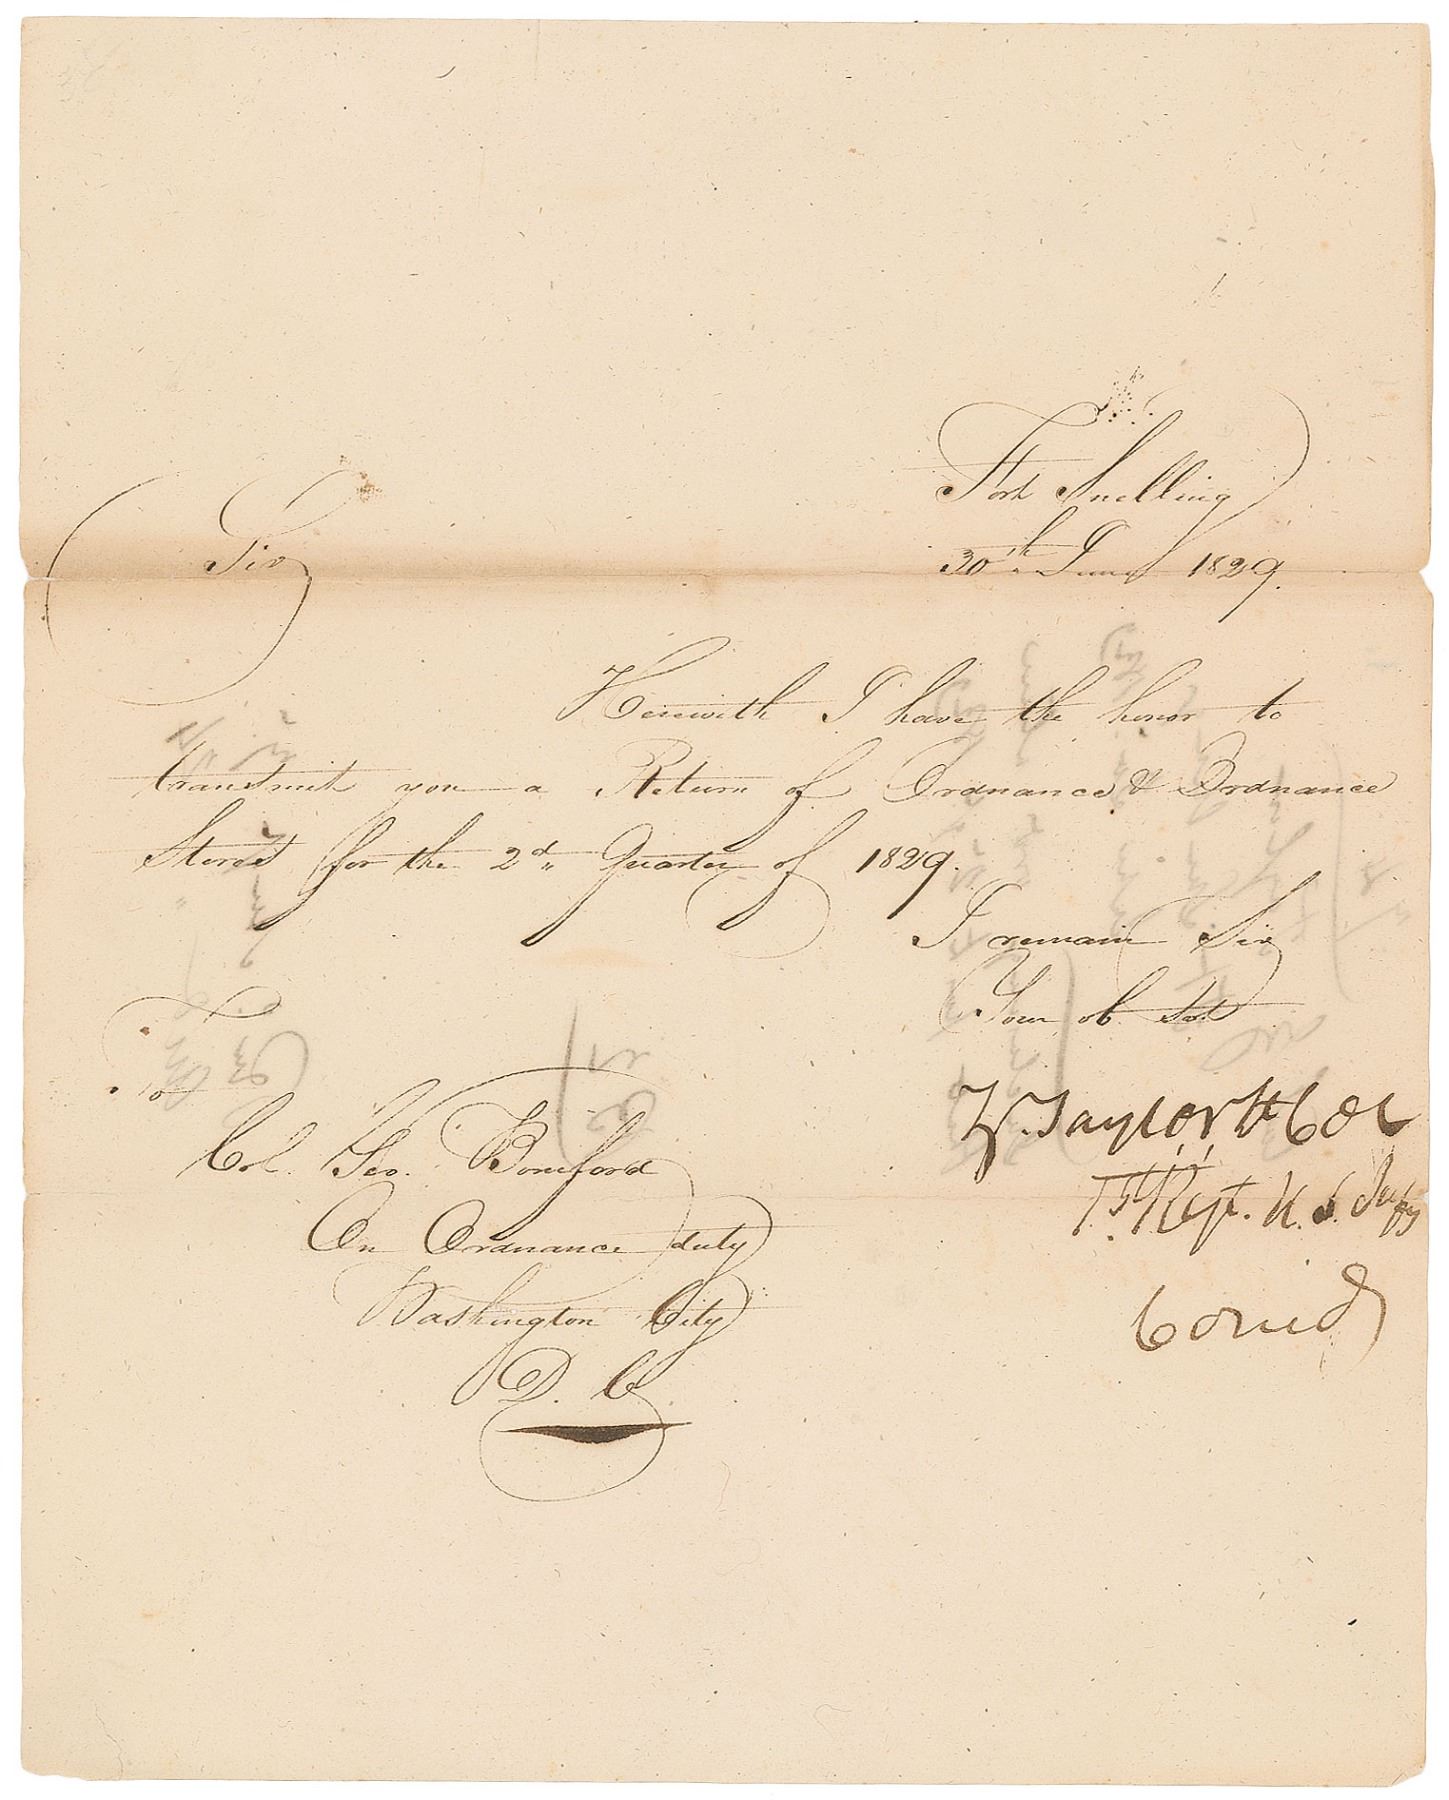 Fort Snelling
30th June 1829.
Sir
Herewith I have the honor to
transmit you a Return of Ordnance & Ordnance
Stores for the 2d Quarter of 1829.
I remain Sir
Your ob Svt
Z. Taylor Lt Col
1st Regt. U. S. Infy
Comdg
To
Col. Geo. Bomford
On Ordnance duty
Washington City
D. C.